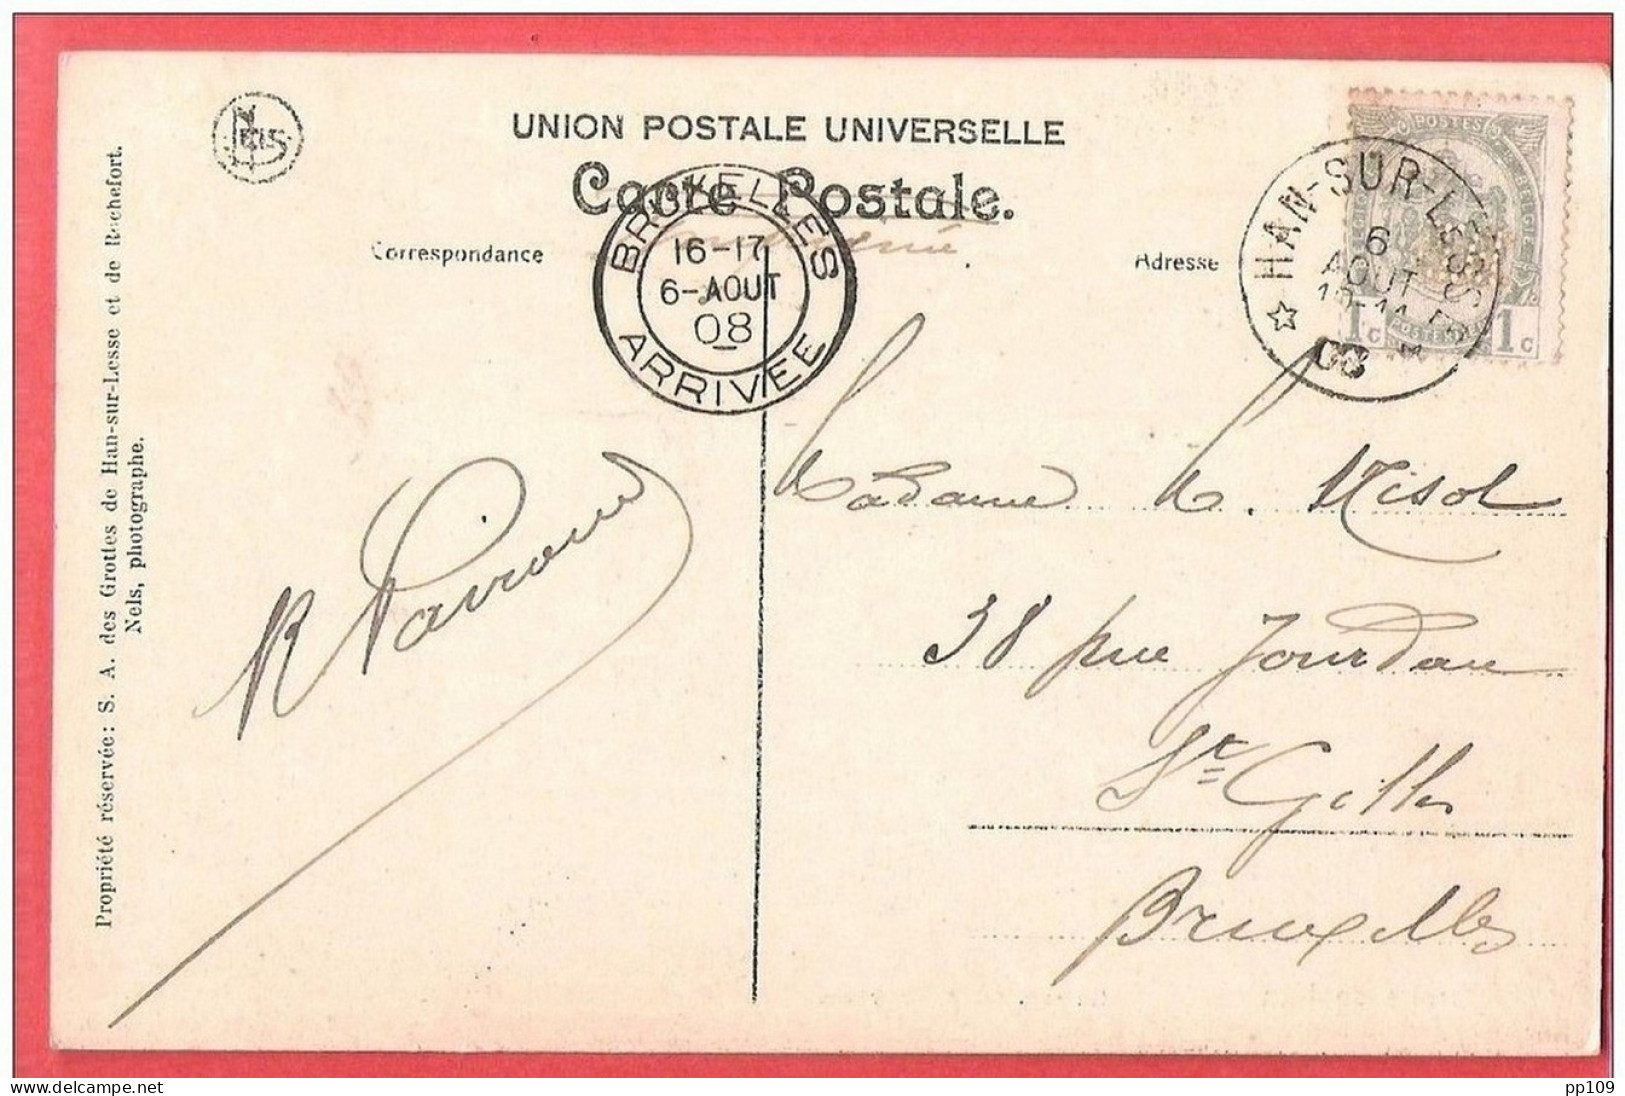 UNION POSTALE UNIVERSELLE
Carte Postale.
Correspondance
Adresse
Nels
BRUXELLES
16-17
6-AOUT
08
ARRIVÉE
HAN-SUR-LESSE
6
AOUT
08
POSTES
1c 1c
Propriété réservée: S. A. des Grottes de Han-sur-Lesse et de Rochefort.
Nels, photographe.
Madame
38 rue Jourdan
St Gilles
Bruxelles
pp109